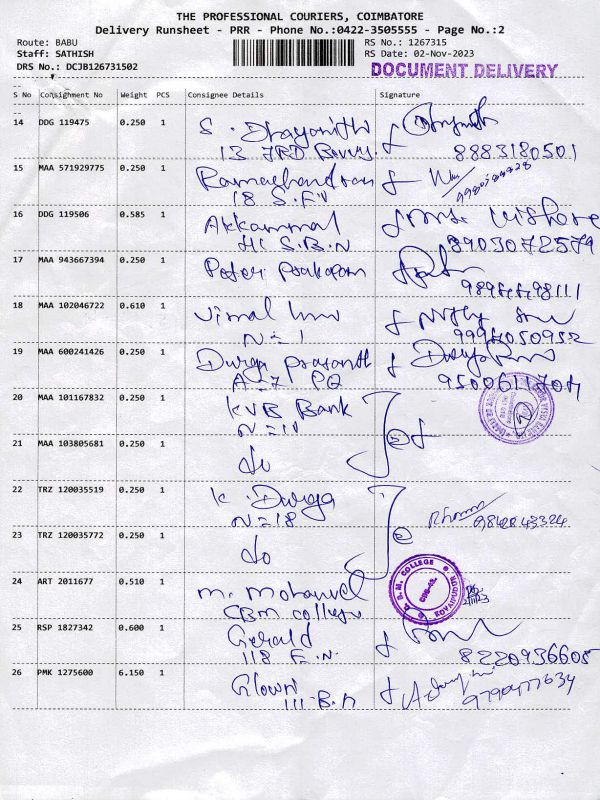 THE PROFESSIONAL COURIERS, COIMBATORE
Delivery Runsheet - PRR - Phone No.:0422-3505555 - Page No.:2
Route: BABU RS No.: 1267315
Staff: SATHISH RS Date: 02-Nov-2023
DRS No.: DCJB126731502 DOCUMENT DELIVERY
S No Consignment No Weight PCS Consignee Details Signature
14 DDG 119475 0.250 1 S. Dhayanithi
13 JRD 8883180501
15 MAA 571929775 0.250 1 Ramachandran
18 S.F.V
16 DDG 119506 0.585 1 Akkammal
41 S.B.N 8903072579
17 MAA 943667394 0.250 1
18 MAA 102046722 0.610 1 Vimal
N=1
19 MAA 600241426 0.250 1 Durga Prasanth
A=7 PQ
20 MAA 101167832 0.250 1 KVB Bank
21 MAA 103805681 0.250 1 do
22 TRZ 120035519 0.250 1 K. Durga
N=18 9842843324
23 TRZ 120035772 0.250 1 do
24 ART 2011677 0.510 1 M. COLLEGE
CBM college
25 RSP 1827342 0.600 1 Gerald
118 E.N. 8220936605
26 PMK 1275600 6.150 1
111-B.N